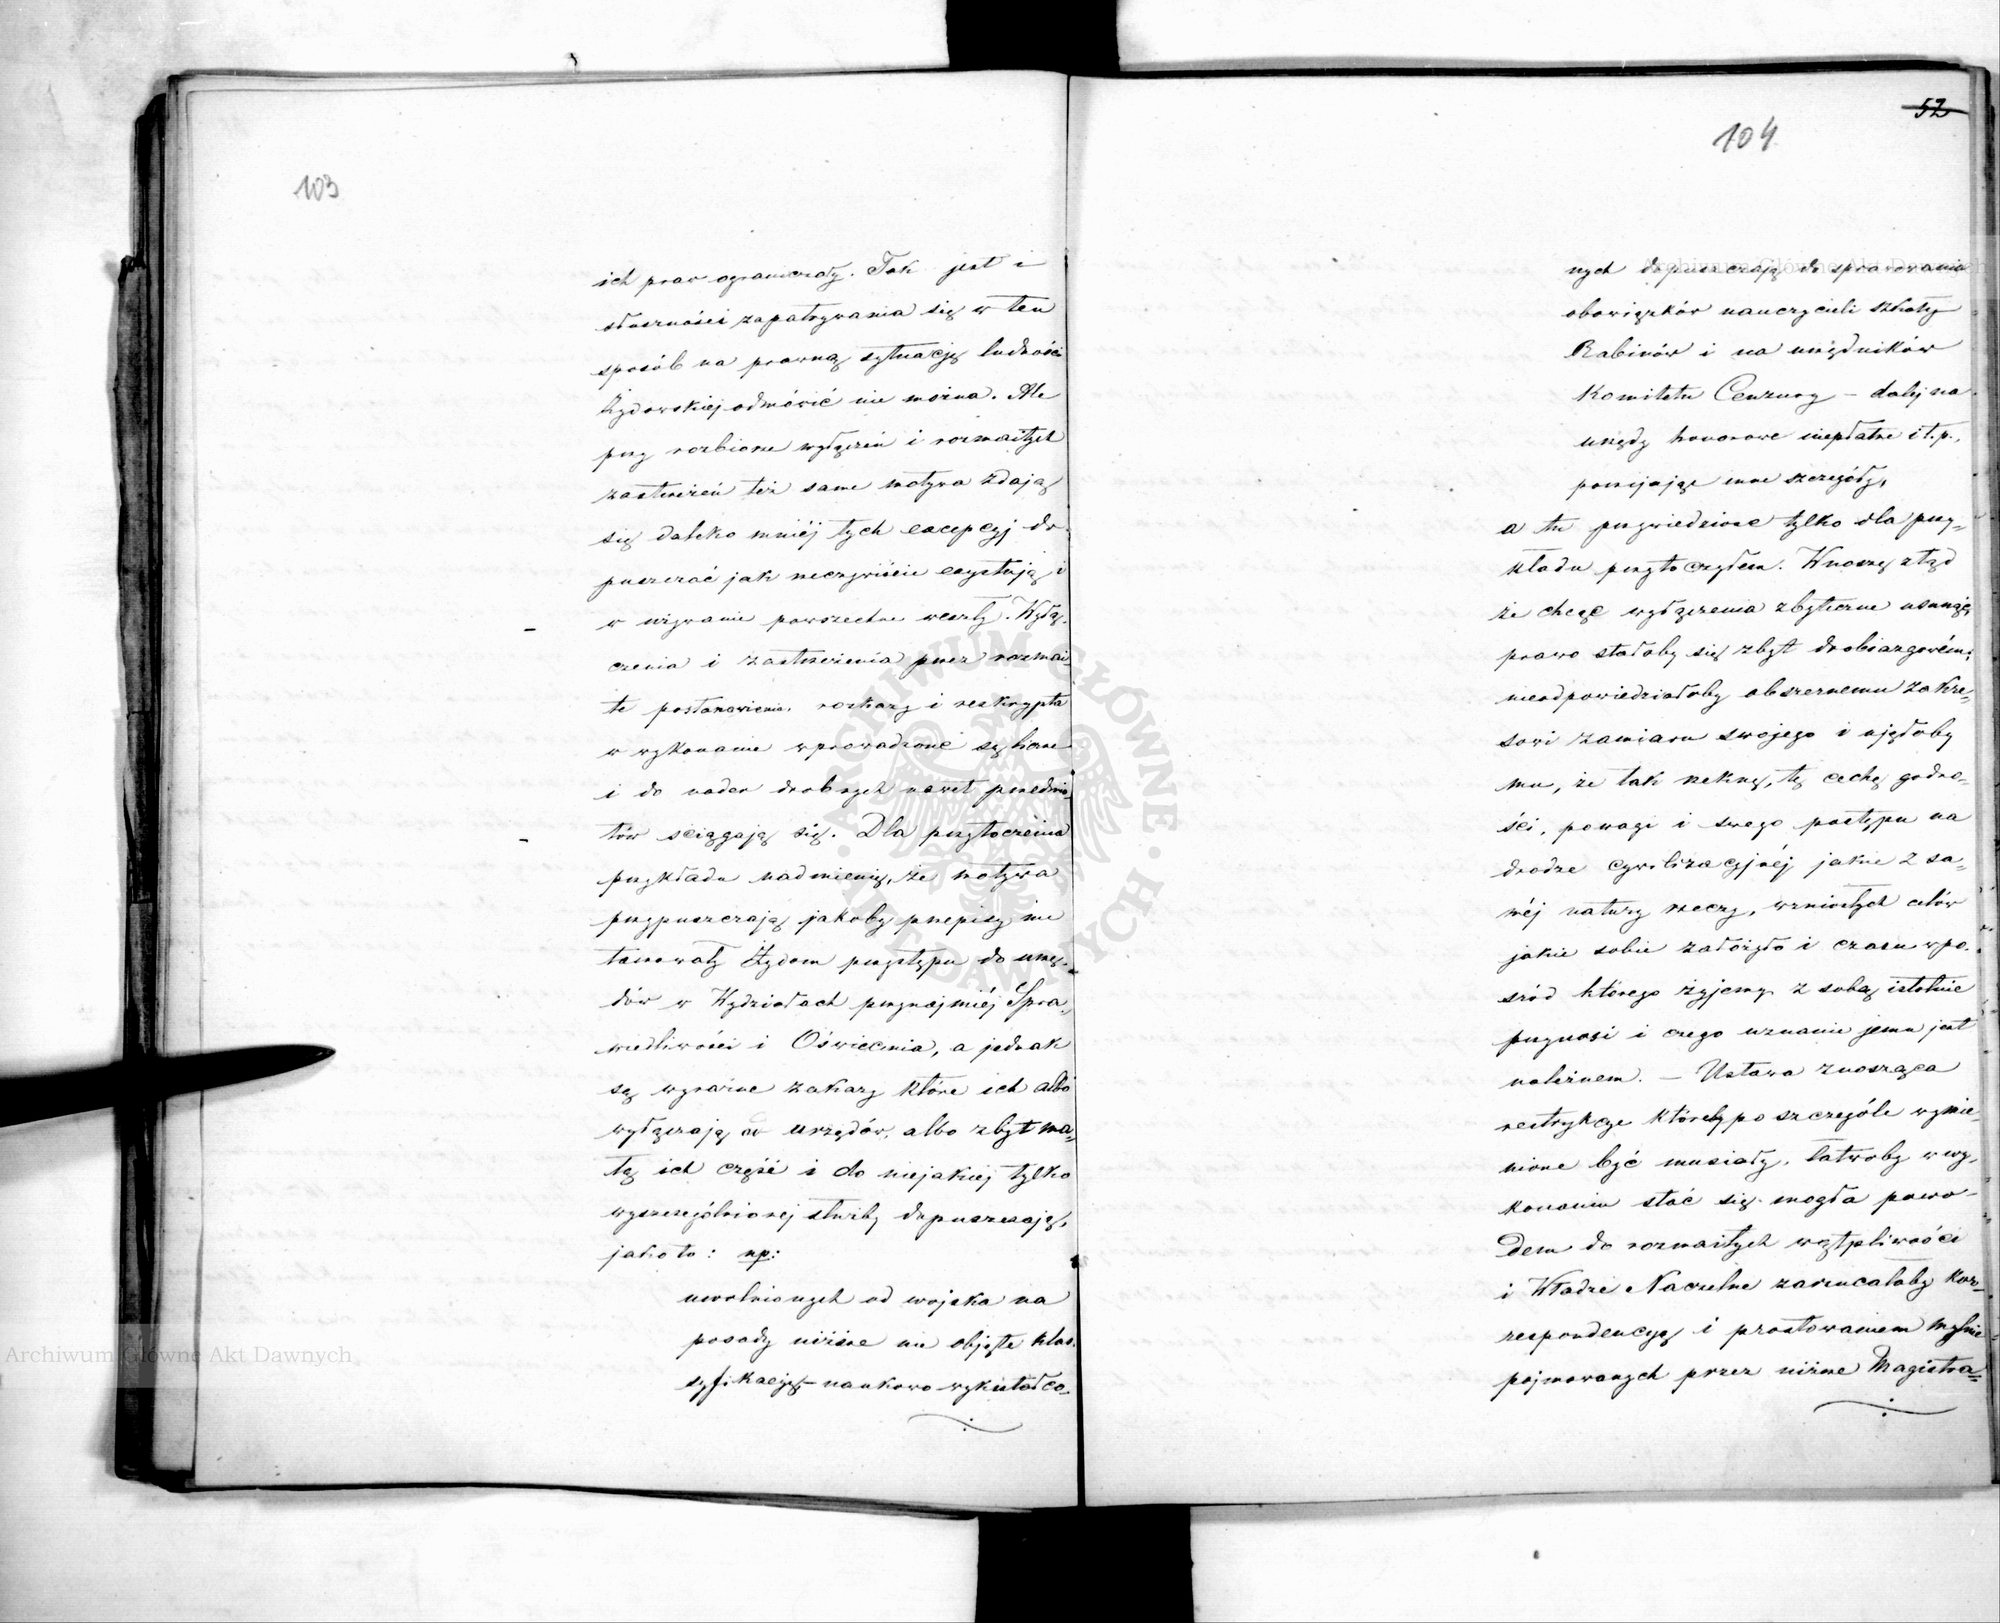 103
ich praw ograniczały. Tak jest i
słuszności zapatrywania się w ten
sposób na prawną sytuacją ludności
Żydowskiej odmówić nie można. Ale
przy rozbiorze wyłączeń i rozmaitych
zastrzeżeń też same motywa zdają
się daleko mniéj tych excepcyj do-
puszczać jak rzeczywiście exystują i
w używanie powszechne weszły. Wyłą-
czenia i zastrzeżenia przez rozmai
te postanowienia, rozkazy i reskrypta
w wykonanie wprowadzone są liczne
i do nader drobnych nawet przedmio-
tów ściągają się. Dla przytoczenia
przykładu nadmienię, że motywa
przypuszczają jakoby przepisy nie
tamowały Żydom przystępu do urzę-
dów w Wydziałach przynajmniéj Spra-
wiedliwości i Oświecenia, a jednak
są wyraźne zakazy które ich albo
wyłączają od urzędów, albo zbyt ma-
łą ich część i do niejakiej tylko
wyszczególnionej służby dopuszczają,
jako to: np:
uwolnionych od wojska na
posady niższe nie objęte klas-
syfikacją – naukowo wykształco-
52
104
nych dopuszczają do sprawowania
obowiązków nauczycieli szkoły
Rabinów i na urzędników
Komitetu Cenzury – dalej na
urzędy honorowe niepłatne i t. p.,
pomijając inne szczegóły,
a tu przywiedzione tylko dla przy-
kładu przytoczyłem. Wnoszę ztąd
że chcąc wyłączenia zbyteczne usunąć,
prawo stałoby się zbyt drobiazgowém,
nieodpowiedziałoby obszernemu zakre-
sowi zamiaru swojego i ujęłoby
mu, że tak rzeknę, tę cechę godno-
ści, powagi i swego postępu na
drodze cywilizacyjnéj jakie z sa-
méj natury rzeczy, wzniosłych celów
jakie sobie założyło i czasu wpo-
śród którego żyjemy z sobą istotnie
przynosi i czego uznanie jemu jest
należnem. – Ustawa znosząca
restrykcye któreby po szczególe wymie-
nione być musiały, łatwoby w wy-
konaniu stać się mogła powo-
dem do rozmaitych wątpliwości
i Władze Naczelne zarzucałaby kor-
respondencyą i prostowaniem mylnie
pojmowanych przez niższe Magistra-
Archiwum Główne Akt Dawnych
Archiwum Główne Akt Dawnych
ARCHIWUM GŁÓWNE AKT DAWNYCH